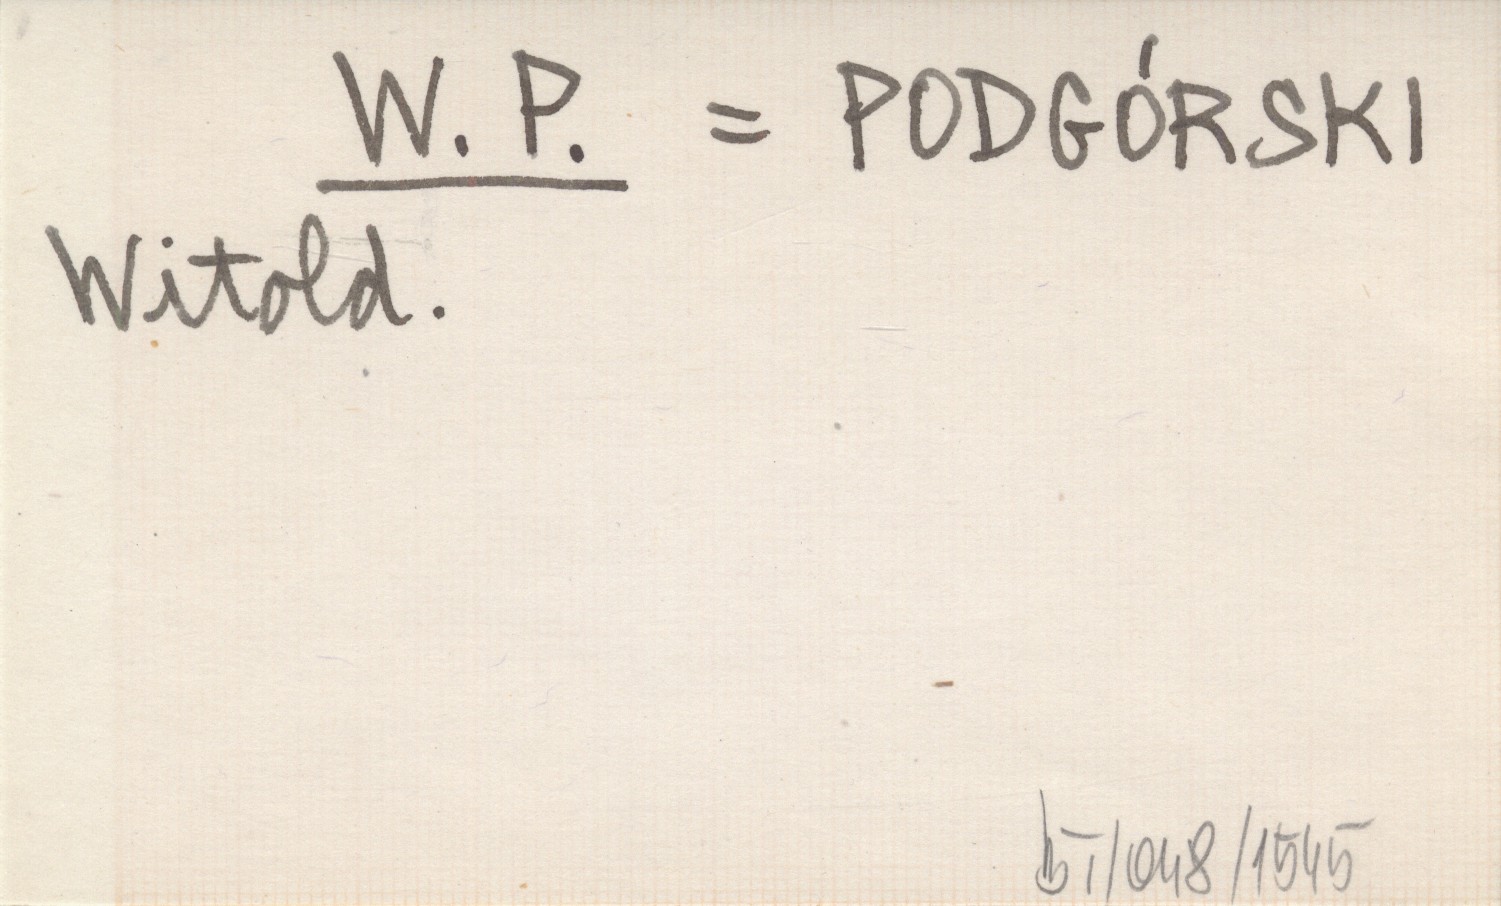 W. P. = PODGÓRSKI
Witold.
bI/048/1545